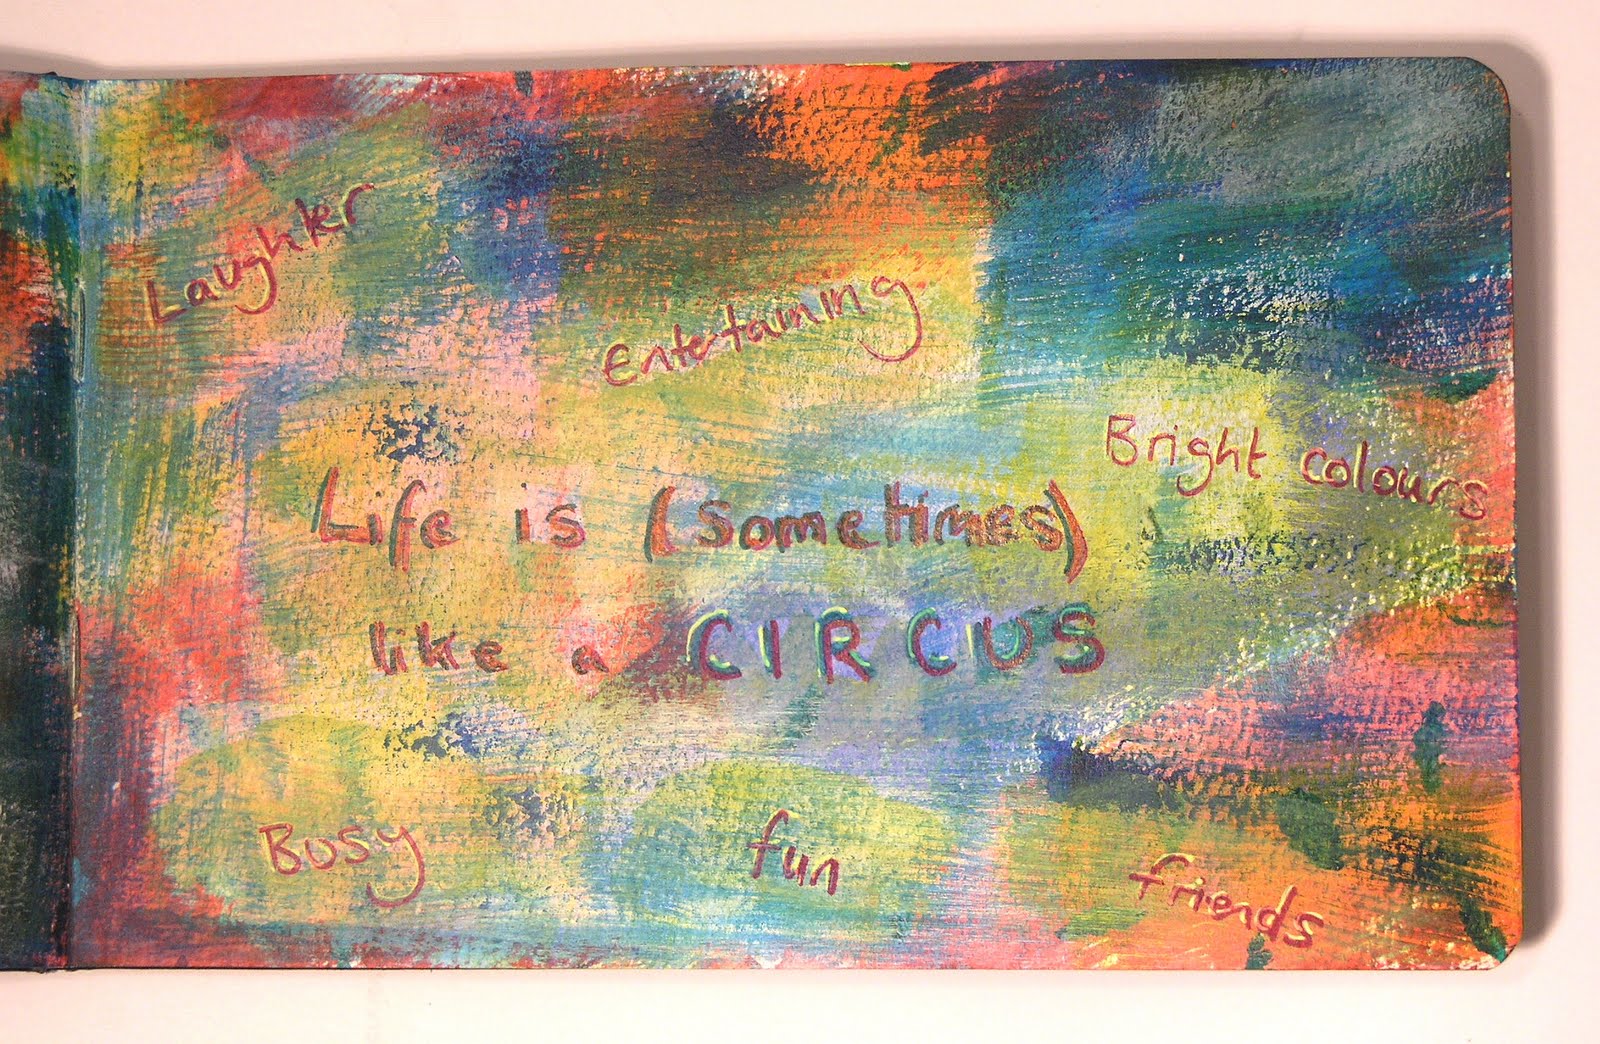 Laughter
Entertaining
Bright colours
Life is (sometimes)
like a CIRCUS
Busy
fun
friends